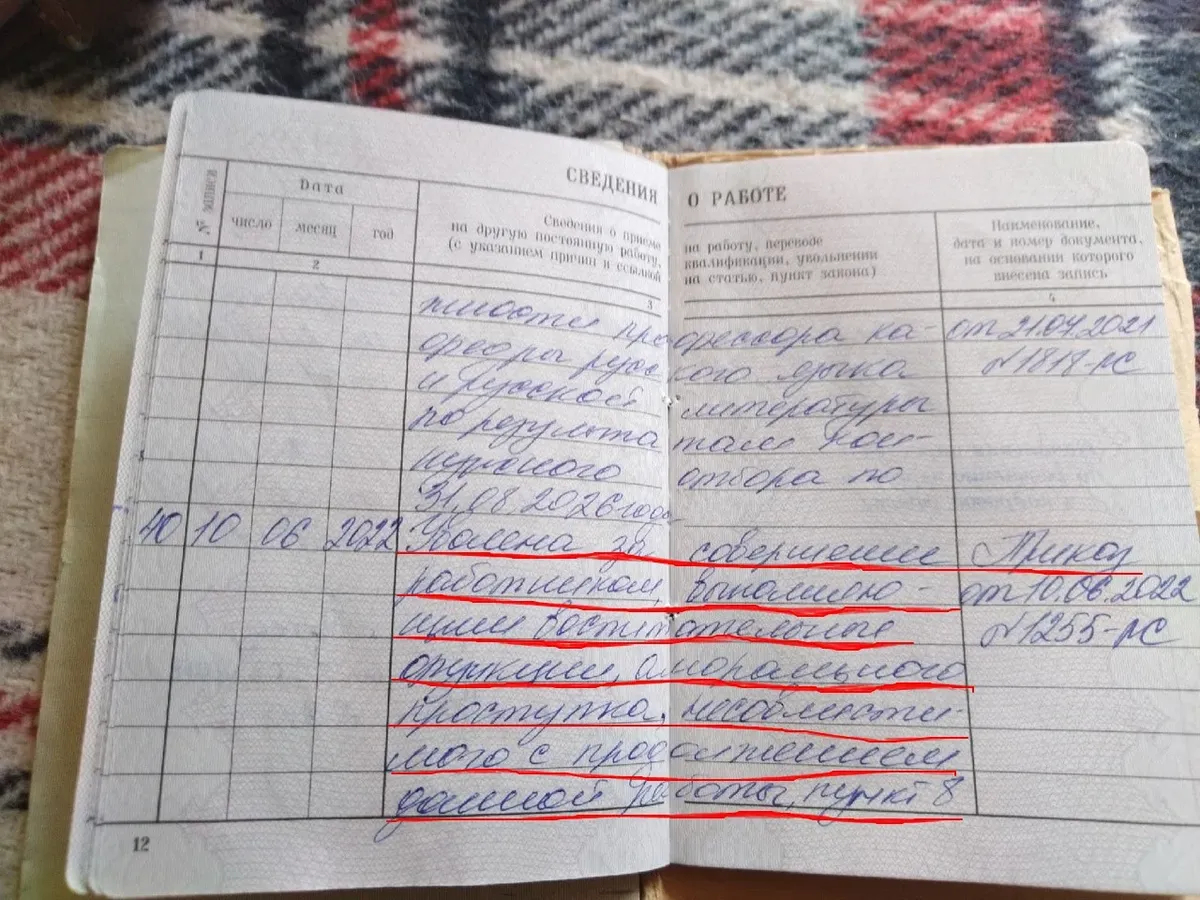 СВЕДЕНИЯ О РАБОТЕ
№ записи
Дата
число
месяц
год
Сведения о приеме на работу, переводе
на другую постоянную работу, квалификации, увольнении
(с указанием причин и ссылкой на статью, пункт закона)
Наименование,
дата и номер документа,
на основании которого
внесена запись
1
2
3
4
жности профессора ка- от 21.04.2021
федры русского языка №1818-рс
и русской литературы
по результатам кон-
курсного отбора по
31.08.2026 года
40 10 06 2022 Уволена за совершение Приказ
работником, выполняю- от 10.06.2022
щим воспитательные №1255-рс
функции, аморального
проступка, несовмести-
мого с продолжением
данной работы, пункт 8
12